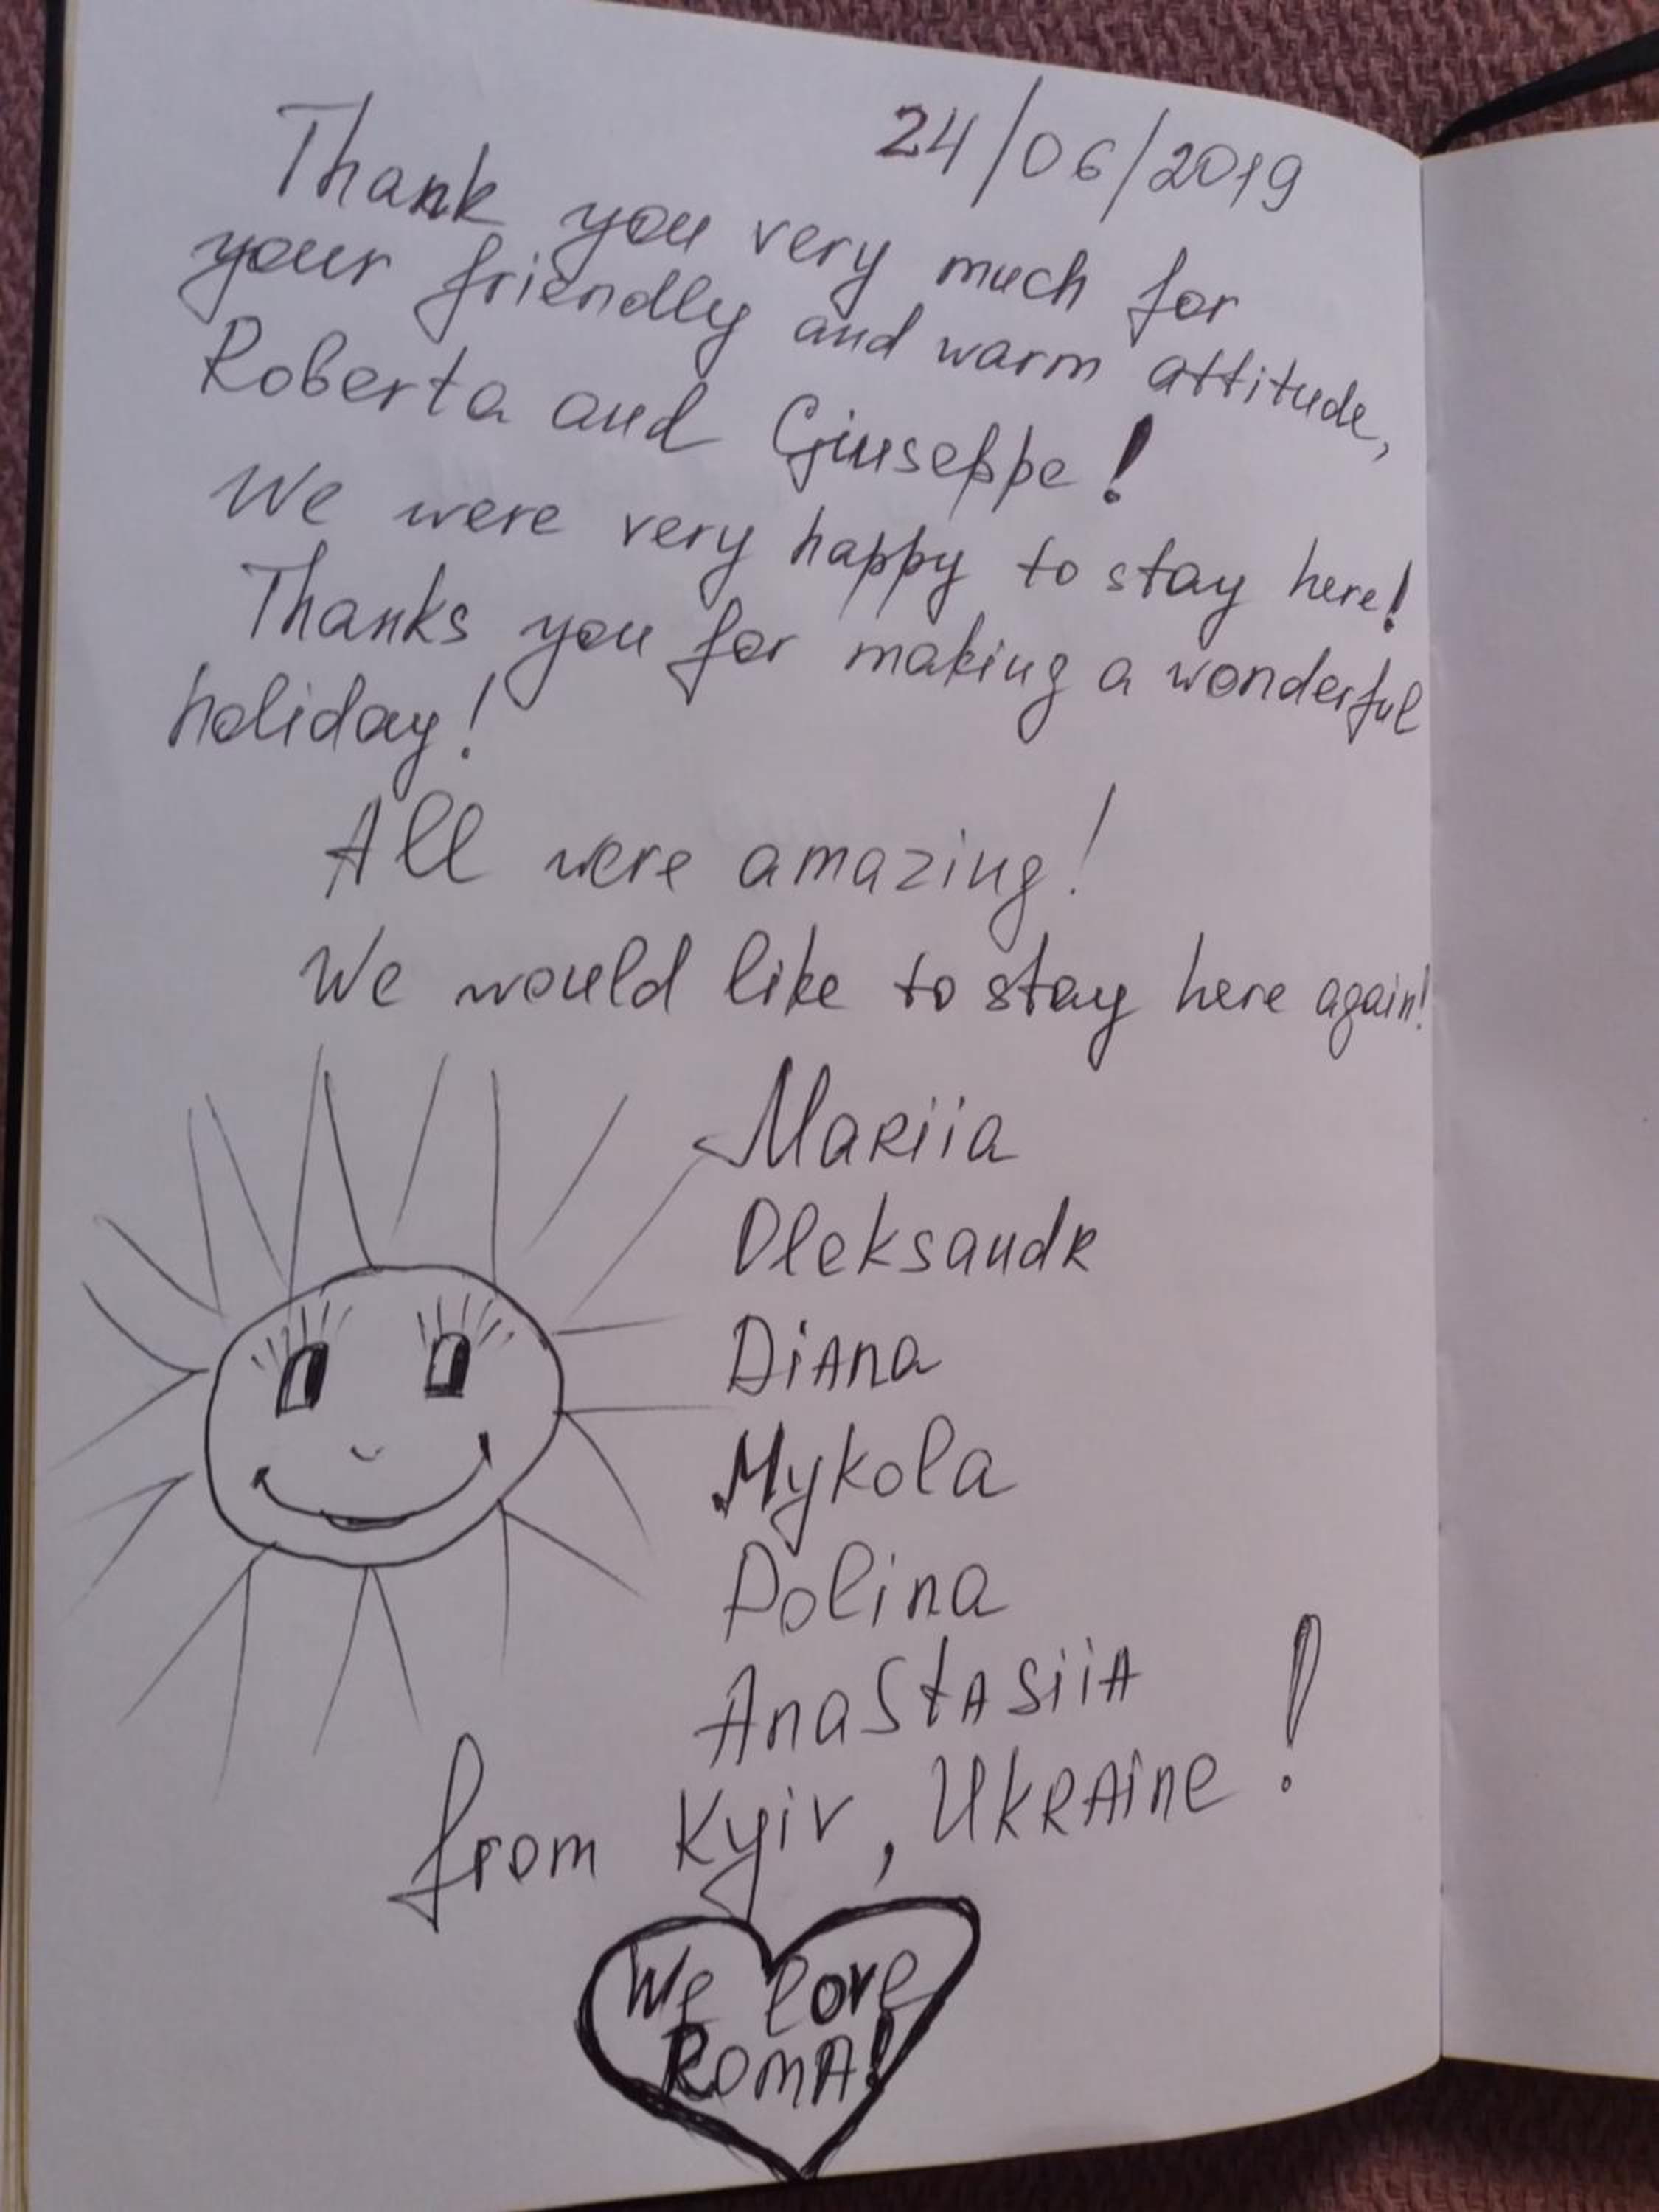 24/06/2019
Thank you very much for
your friendly and warm attitude,
Roberta and Giuseppe!
We were very happy to stay here!
Thanks you for making a wonderful
holiday!
All were amazing!
We would like to stay here again!
Mariia
Oleksandr
Diana
Mykola
Polina
Anastasiia
from Kyiv, Ukraine!
We love
Roma!